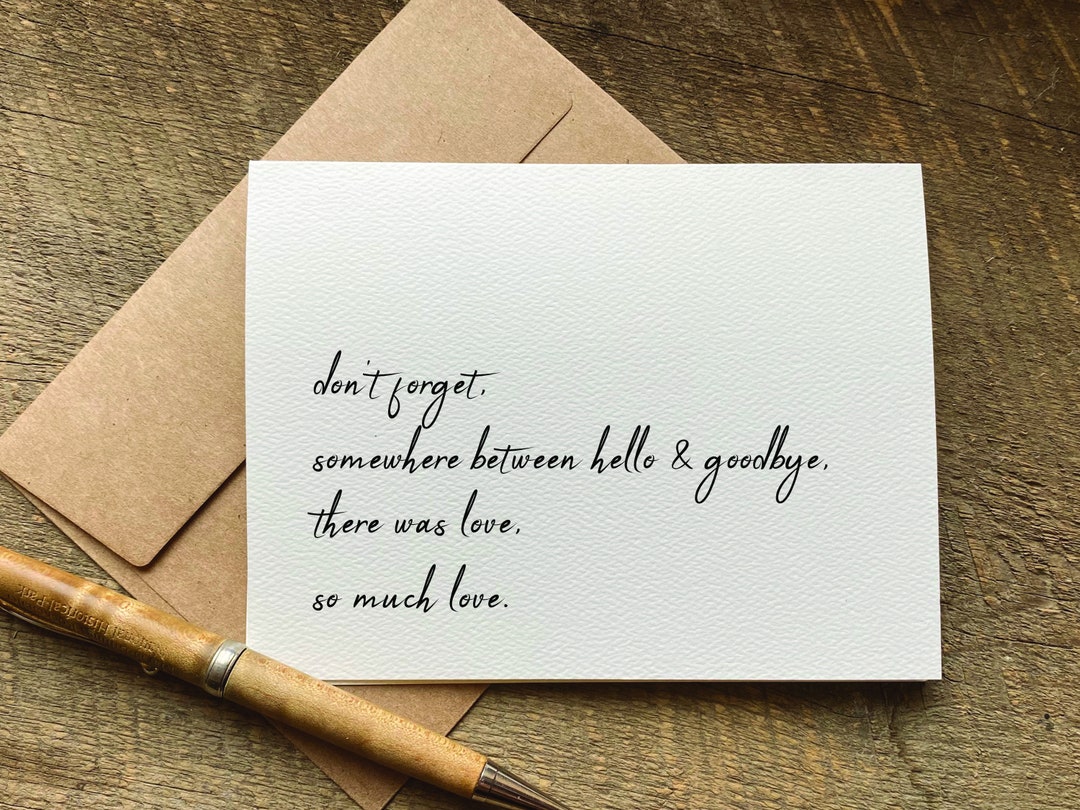 don't forget,
somewhere between hello & goodbye,
there was love,
so much love.
Historical Park